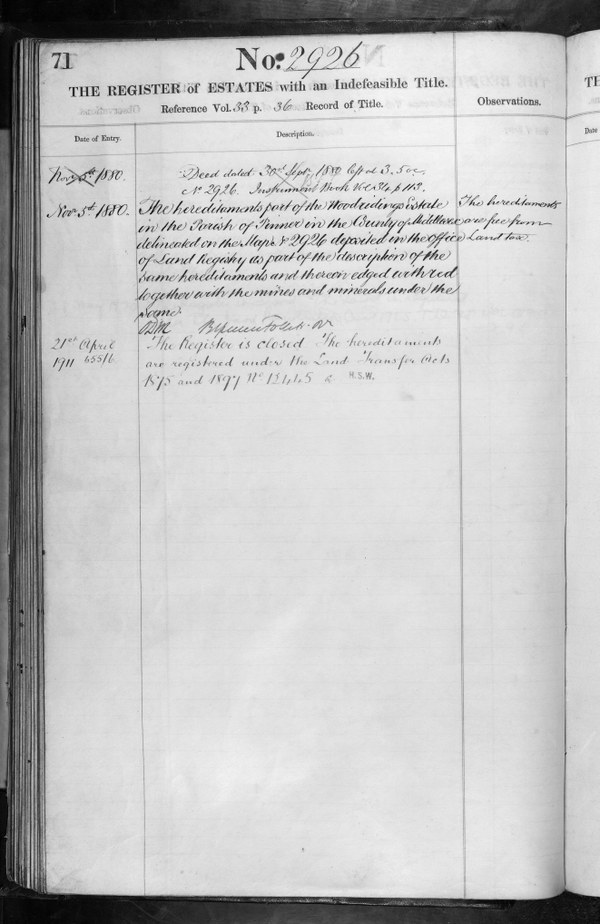 71
No: 2926
THE REGISTER of ESTATES with an Indefeasible Title.
Reference Vol. 33 p. 36 Record of Title.
Observations.
Date of Entry.
Description.
Nov 5th 1880.
Deed dated 30th Septr 1880 left at 3.5 oc.
No 2926. Instrument Book Vol 34 p 113.
Nov 5th 1880.
The hereditaments part of the Woodridings Estate
in the Parish of Pinner in the County of Middlesex
delineated on the Map No 2926 deposited in the Office
of Land Registry as part of the description of the
same hereditaments and thereon edged with red
together with the mines and minerals under the
same
The hereditaments
are free from
Land tax.
21st April
1911
The Register is closed The hereditaments
are registered under the Land Transfer Acts
1875 and 1897 No
H.S.W.
TH
Date